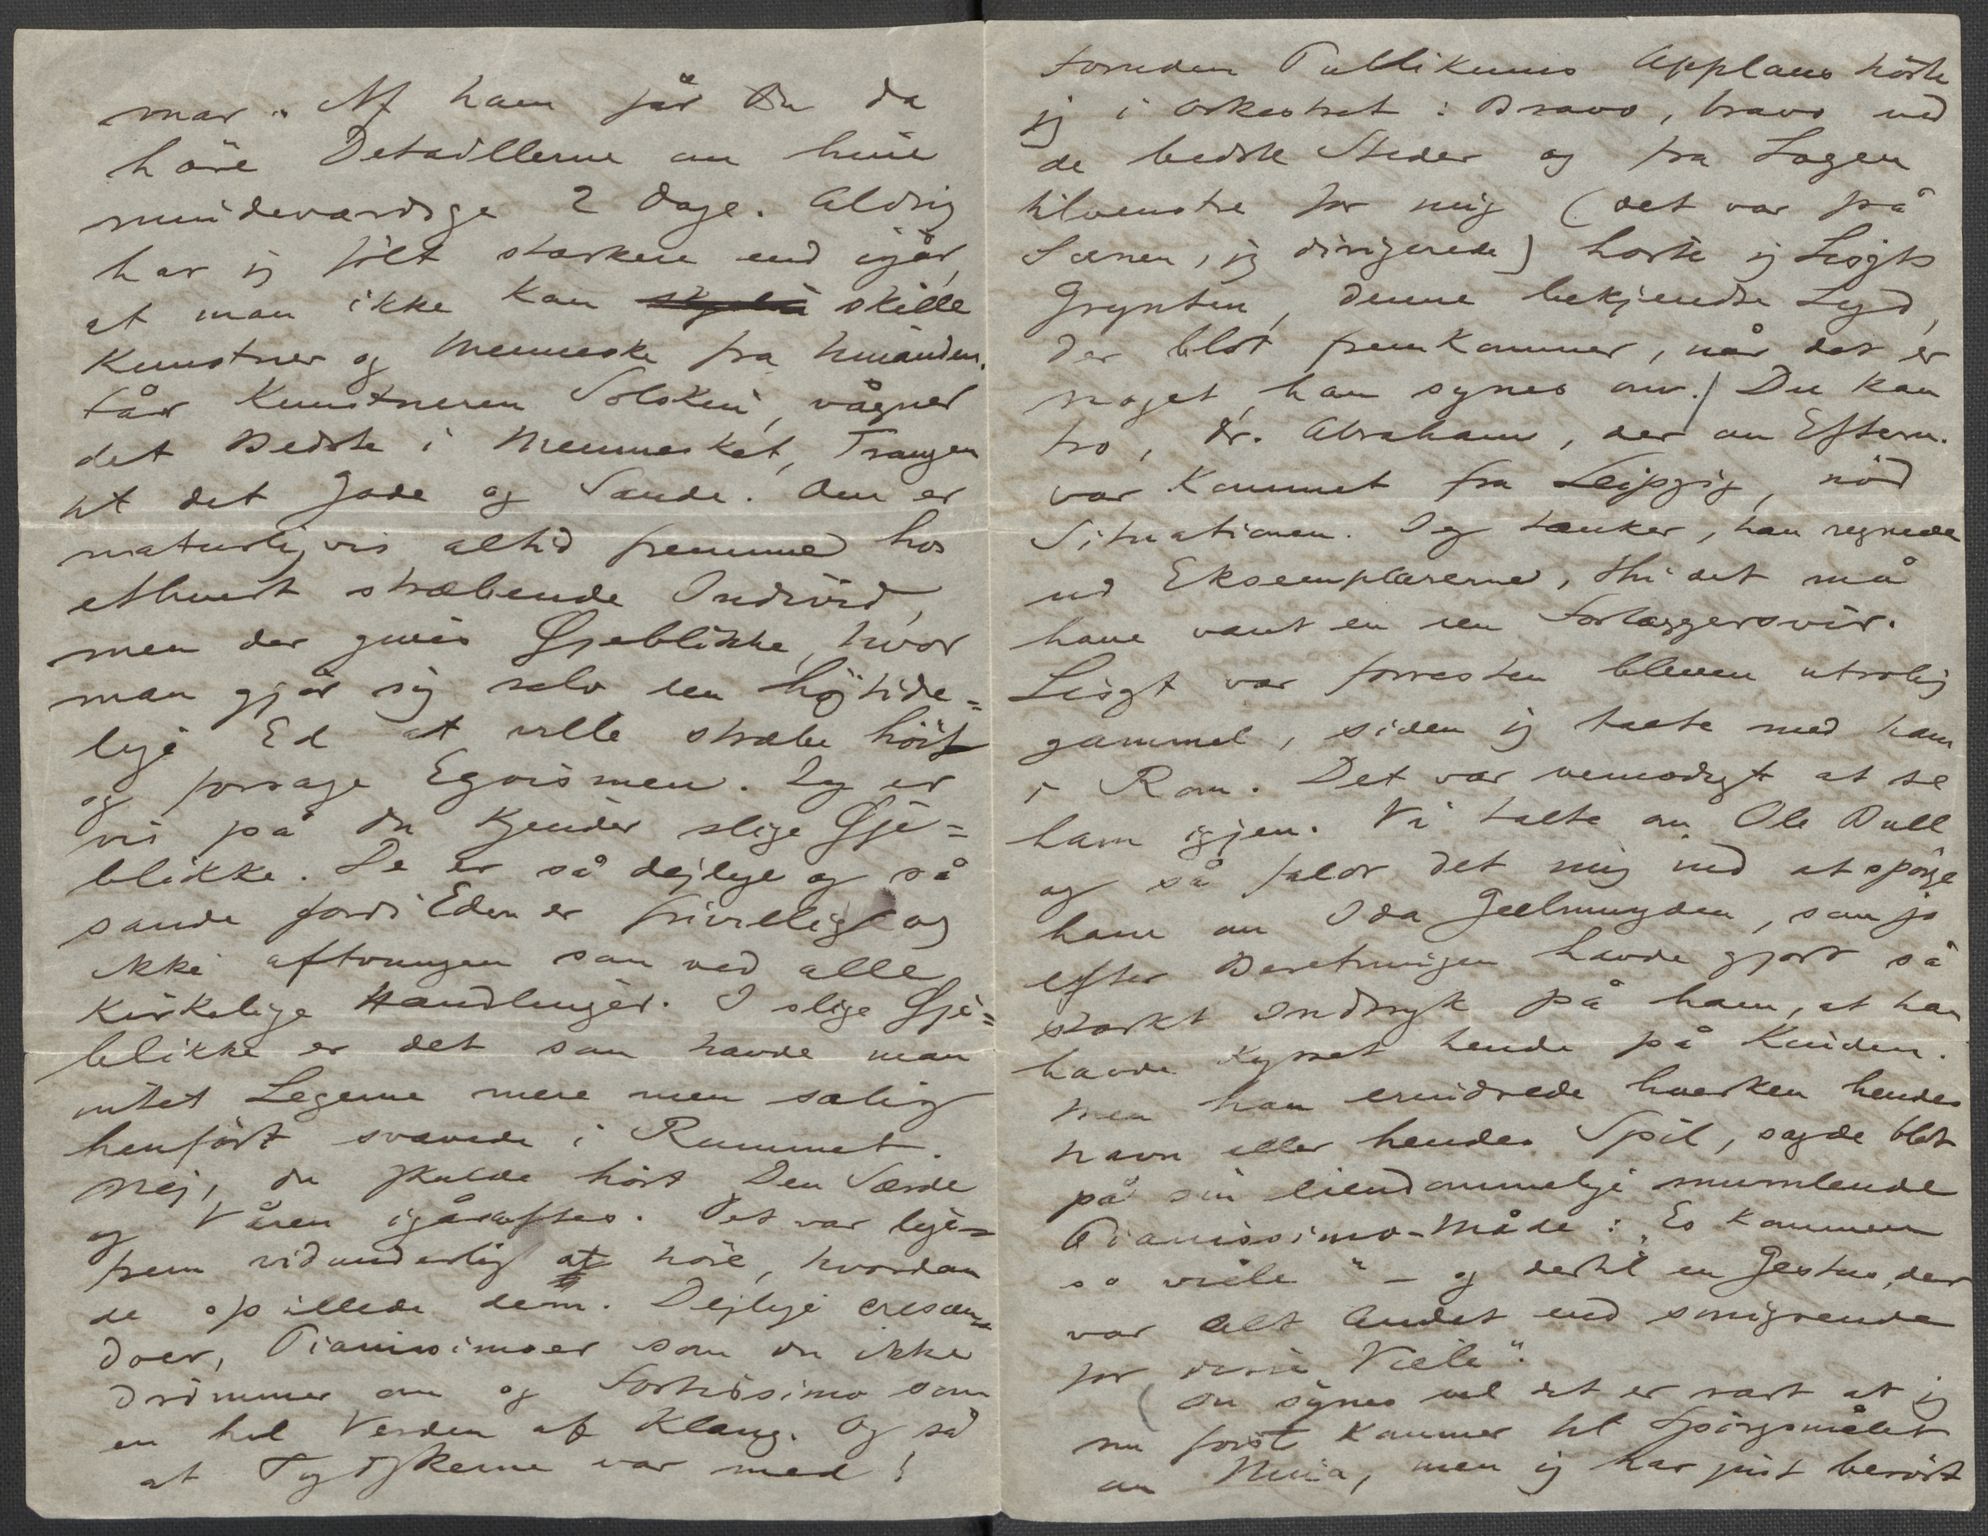 mar". Af ham får Du da
høre Detaillerne om hine
mindeværdige 2 Dage. Aldrig
har jg følt stærkere end igår,
at man ikke kan skille
Kunstner og Menneske fra hinanden.
Får Kunstneren Solskin, vågner
det Bedste i Mennesket, Trangen
til det Gode og Sande. Den er
naturligvis altid fremme hos
ethvert stræbende Individ,
men der gives Øjeblikke, hvor
man gjør sig selv en højtide=
lige Ed at ville stræbe højt
og forsage Egoismen. Jeg er
vis på du kjender slige Øje=
blikke. De er så dejlige og så
sande fordi Eden er frivillig og
ikke aftvungen som ved alle
kirkelige Handlinger. I slige Øje=
blikke er det som havde man
intet Legeme mere men salig
henført svævede i Rummet.
Nej, du skulde hørt Den Særde
og Våren igåraftes. Det var lige=
frem vidunderlig at høre, hvordan
de spillede dem. Dejlige crescen=
doer, Pianissimoer som du ikke
drømmer om og Fortissimo som
en hel Verden af Klang. Og så
at Tydskerne var med!
foruden Publikums Applaus hørte
jg i Orkestret: Bravo, bravo ved
de bedste Steder og fra Logen
tilvenstre for mig (det var på
Scenen, jg dirigerede) hørte jg Liszts
Grynten, denne bekjendte Lyd,
der blot fremkommer, når det er
noget, han synes om. Du kan
tro, Dr. Abraham, der om Efterm.
var kommet fra Leipzig, nød
Situationen. Jeg tænker, han regnede
ud Eksemplarerne, thi det må
have vært en ren Forlæggersvir.
Liszt var forresten bleven utrolig
gammel, siden jg talte med ham
i Rom. Det var vemodigt at se
ham igjen. Vi talte om Ole Bull
og så faldt det mig ind at spørge
ham om Ida Geelmuyden, som jo
efter Beretningen havde gjort så
stærkt Indtryk på ham, at han
havde kysset hende på Kinden.
Men han erindrede hverken hendes
Navn eller hendes Spil, sagde blot
på sin eiendommelige mumlende
Pianissimo-Måde: "Es kommen
so viele" – og dertil en Gestus, der
var alt Andet end smigrende
for disse "Viele".
(Du synes vel det er rart at jg
nu først kommer til Spørgsmålet
om Nina, men jg har just berørt